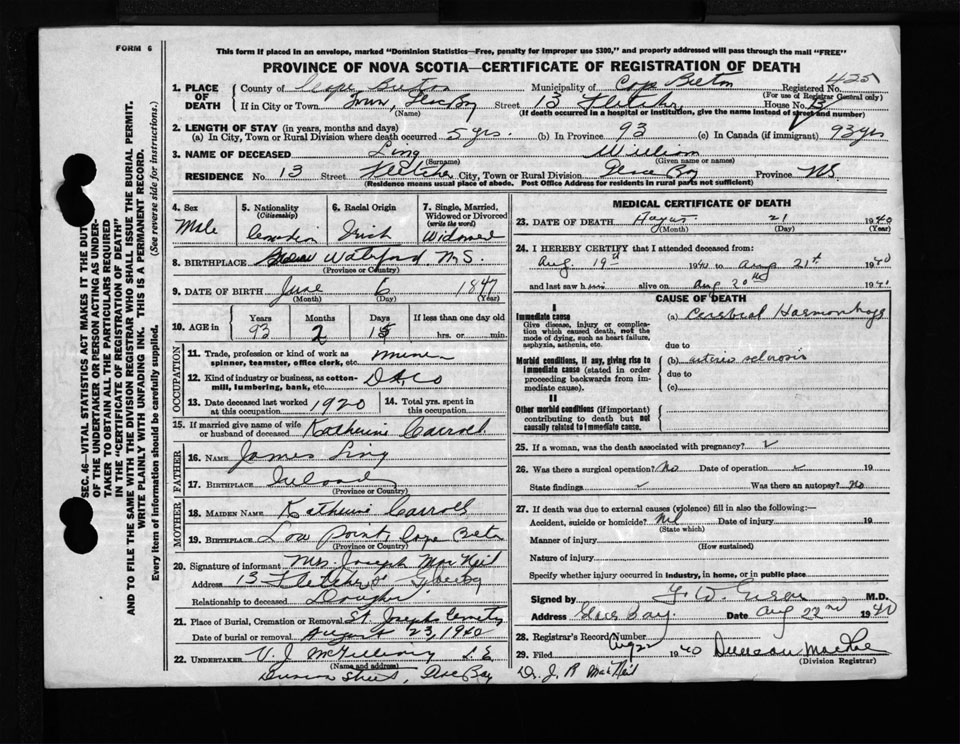 FORM 6
This form if placed in an envelope, marked "Dominion Statistics—Free, penalty for improper use $300," and properly addressed will pass through the mail "FREE"
PROVINCE OF NOVA SCOTIA—CERTIFICATE OF REGISTRATION OF DEATH
SEC. 46—VITAL STATISTICS ACT MAKES IT THE DUTY
OF THE UNDERTAKER OR PERSON ACTING AS UNDER-
TAKER TO OBTAIN ALL THE PARTICULARS REQUIRED
IN THE "CERTIFICATE OF REGISTRATION OF DEATH"
AND TO FILE THE SAME WITH THE DIVISION REGISTRAR WHO SHALL ISSUE THE BURIAL PERMIT.
WRITE PLAINLY WITH UNFADING INK. THIS IS A PERMANENT RECORD.
Every item of Information should be carefully supplied. (See reverse side for instructions.)
1. PLACE OF DEATH County of Cape Breton Municipality of Cape Breton Registered No. 425
(For use of Registrar General only)
If in City or Town Town, Glace Bay Street 13 Fletcher House No. 13
(Name) (If death occurred in a hospital or institution, give the name instead of street and number)
2. LENGTH OF STAY (in years, months and days)
(a) In City, Town or Rural Division where death occurred 5 yrs. (b) In Province 93 (c) In Canada (if immigrant) 93 yrs
3. NAME OF DECEASED Ling William
(Surname) (Given name or names)
RESIDENCE No. 13 Street Fletcher City, Town or Rural Division Glace Bay Province NS
(Residence means usual place of abode. Post Office Address for residents in rural parts not sufficient)
4. Sex Male
5. Nationality (Citizenship) Canadian
6. Racial Origin Irish
7. Single, Married, Widowed or Divorced (write the word) Widowed
8. BIRTHPLACE New Waterford N.S.
(Province or Country)
9. DATE OF BIRTH June 6 1847
(Month) (Day) (Year)
10. AGE in Years 93 Months 2 Days 15 If less than one day old hrs. or min.
OCCUPATION
11. Trade, profession or kind of work as spinner, teamster, office clerk, etc. Miner
12. Kind of industry or business, as cotton-mill, lumbering, bank, etc. Dosco
13. Date deceased last worked at this occupation 1920
14. Total yrs. spent in this occupation
15. If married give name of wife or husband of deceased Katherine Carroll
FATHER
16. Name James Ling
17. Birthplace Ireland
(Province or Country)
MOTHER
18. Maiden Name Katherine Carroll
19. Birthplace Low Point, Cape Breton
(Province or Country)
20. Signature of informant Mrs. Joseph MacNeil
Address 13 Fletcher St Glace Bay
Relationship to deceased Daughter
21. Place of Burial, Cremation or Removal St. Josephs Cemetry
Date of burial or removal August 23, 1940
22. UNDERTAKER V. J. McGillivray
(Name and address)
Street, Glace Bay
MEDICAL CERTIFICATE OF DEATH
23. DATE OF DEATH August 21 1940
(Month) (Day) (Year)
24. I HEREBY CERTIFY that I attended deceased from:
Aug. 19th 1940 to Aug 21st 1940
and last saw him alive on Aug 20th 1940
CAUSE OF DEATH
I
Immediate cause
Give disease, injury or complication which caused death, not the mode of dying, such as heart failure, asphyxia, asthenia, etc.
(a) Cerebral Haemorrhage
due to
Morbid conditions, if any, giving rise to immediate cause (stated in order proceeding backwards from immediate cause).
(b) arterio sclerosis
due to
(c)
II
Other morbid conditions (if important) contributing to death but not causally related to immediate cause.
25. If a woman, was the death associated with pregnancy?
26. Was there a surgical operation? No Date of operation 19
State findings Was there an autopsy? No
27. If death was due to external causes (violence) fill in also the following:—
Accident, suicide or homicide? Nil Date of injury 19
(State which)
Manner of injury
(How sustained)
Nature of injury
Specify whether injury occurred in industry, in home, or in public place
Signed by M.D.
Address Glace Bay. Date Aug 22nd 1940
28. Registrar's Record Number
29. Filed Aug 22 1940 Duncan MacRae
(Division Registrar)
Dr. J. R MacNeil